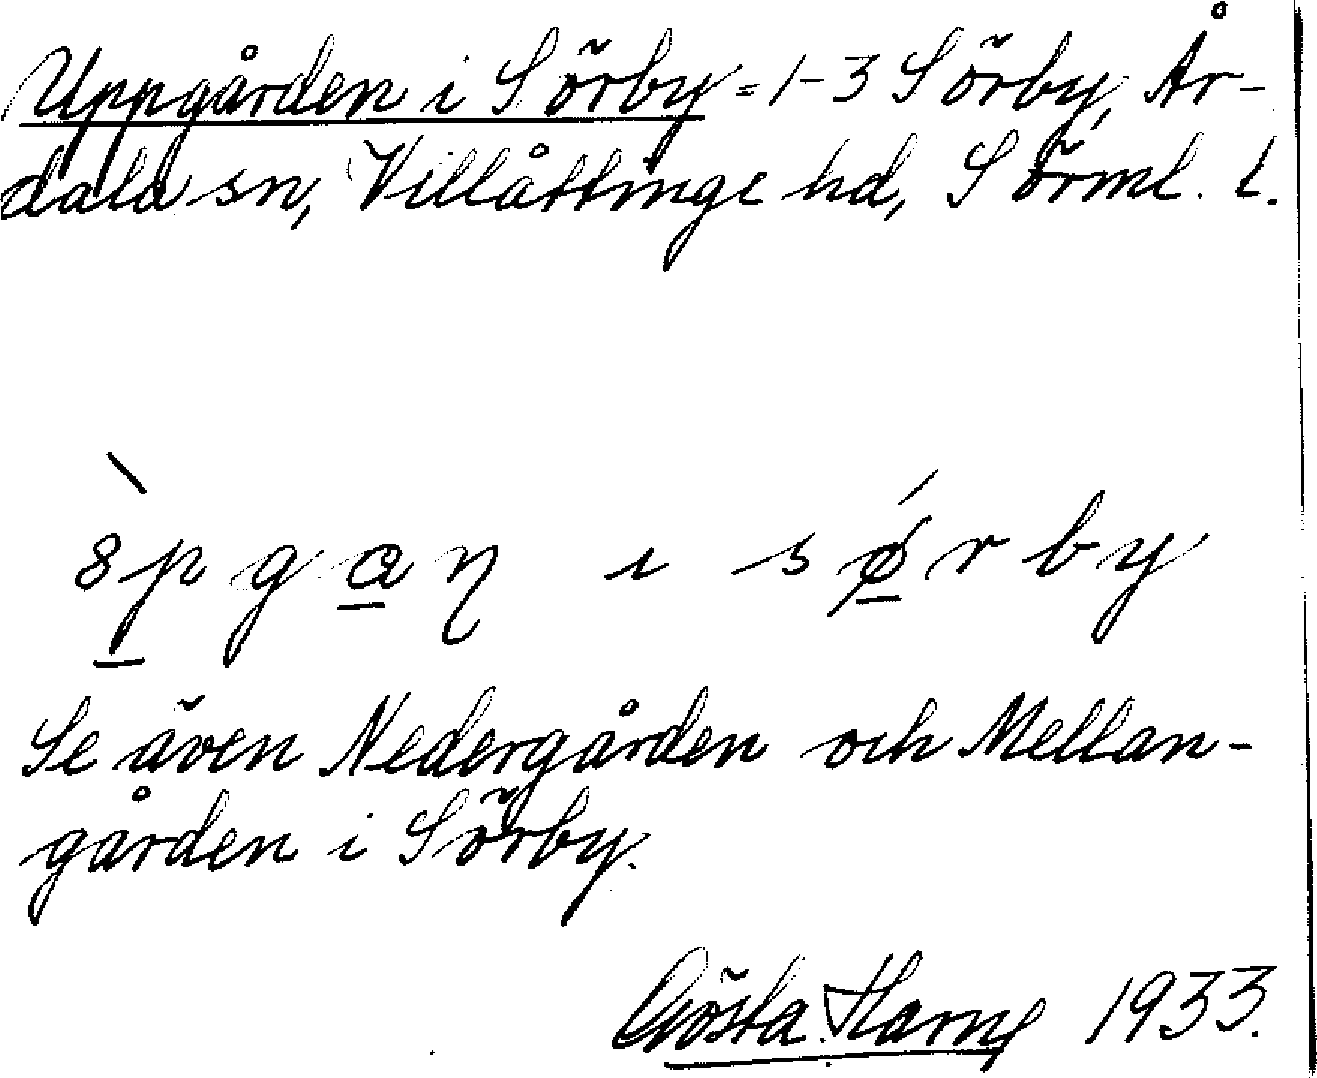 Uppgården i Sörby = 1-3 Sörby, År-
dala sn, Villåttinge hd, Sörml. l.
i sǿ̱rby
Se även Nedergården och Mellan-
gården i Sörby.
Gösta Harny 1933.